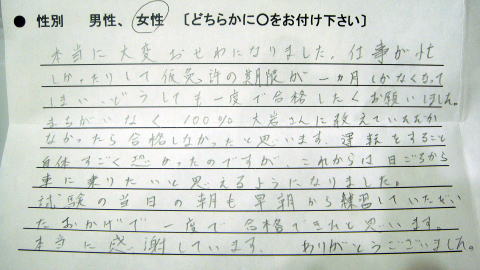 ● 性別　男性、女性　〔どちらかに〇をお付け下さい〕
本当に大変おせわになりました。仕事が忙
しかったりして仮免許の期限が一ヵ月しかなくなって
しまい、どうしても一度で合格したくお願いしました。
まちがいなく100%大岩さんに教えていただか
なかったら合格しなかったと思います。運転をすること
自体すごく恐かったのですが、これからは日ごろから
車に乗りたいと思えるようになりました。
試験の当日の朝も早朝から練習していただい
たおかげで一度で合格できたと思います。
本当に感謝しています。ありがとうございました。